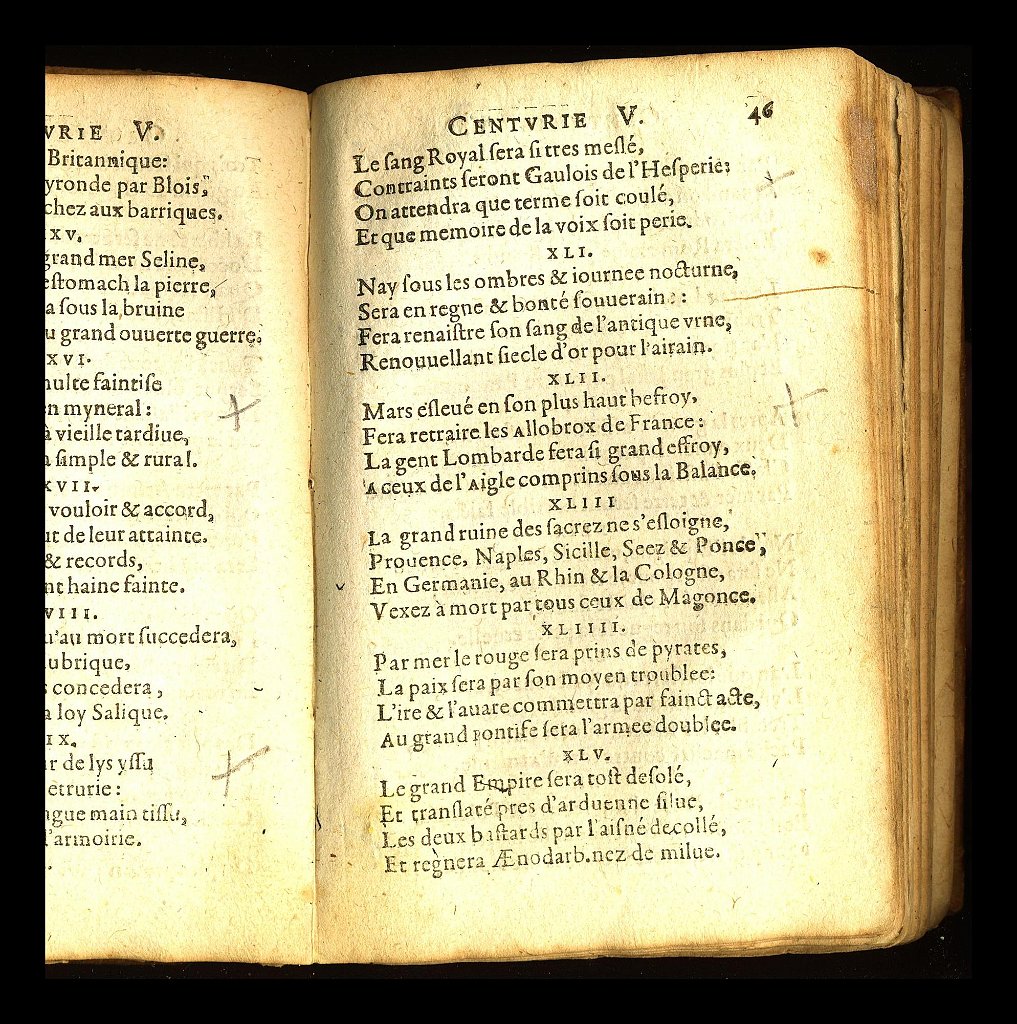 VRIE V.
Britannique:
yronde par Blois,
chez aux barriques.
XV.
grand mer Seline,
eſtomach la pierre,
a ſous la bruine
u grand ouuerte guerre.
XVI.
nulte faintiſe
en myneral:
à vieille tardiue,
a ſimple & rural.
XVII.
vouloir & accord,
ut de leur attainte.
& records,
nt haine fainte.
VIII.
u'au mort ſuccedera,
ubrique,
s concedera,
a loy Salique.
IX.
r de lys yſſu
etrurie:
ngue main tiſſu,
l'armoirie.
CENTVRIE V. 46
Le ſang Royal ſera ſi tres meſlé,
Contraints ſeront Gaulois de l'Heſperie:
On attendra que terme ſoit coulé,
Et que memoire de la voix ſoit perie.
XLI.
Nay ſous les ombres & iournee nocturne,
Sera en regne & bonté ſouueraine:
Fera renaiſtre ſon ſang de l'antique vrne,
Renouuellant ſiecle d'or pour l'airain.
XLII.
Mars eſleué en ſon plus haut befroy,
Fera retraire les Allobrox de France:
La gent Lombarde fera ſi grand effroy,
A ceux de l'Aigle comprins ſous la Balance.
XLIII
La grand ruine des ſacrez ne s'eſloigne,
Prouence, Naples, Sicille, Seez & Ponce,
En Germanie, au Rhin & la Cologne,
Vexez à mort par tous ceux de Magonce.
XLIIII.
Par mer le rouge ſera prins de pyrates,
La paix ſera par ſon moyen troublee:
L'ire & l'auare commettra par fainct acte,
Au grand Pontife ſera l'armee doublee.
XLV.
Le grand Empire ſera toſt deſolé,
Et tranſlaté pres d'arduenne ſilue,
Les deux baſtards par l'aiſné decollé,
Et regnera Ænodarb.nez de milue.